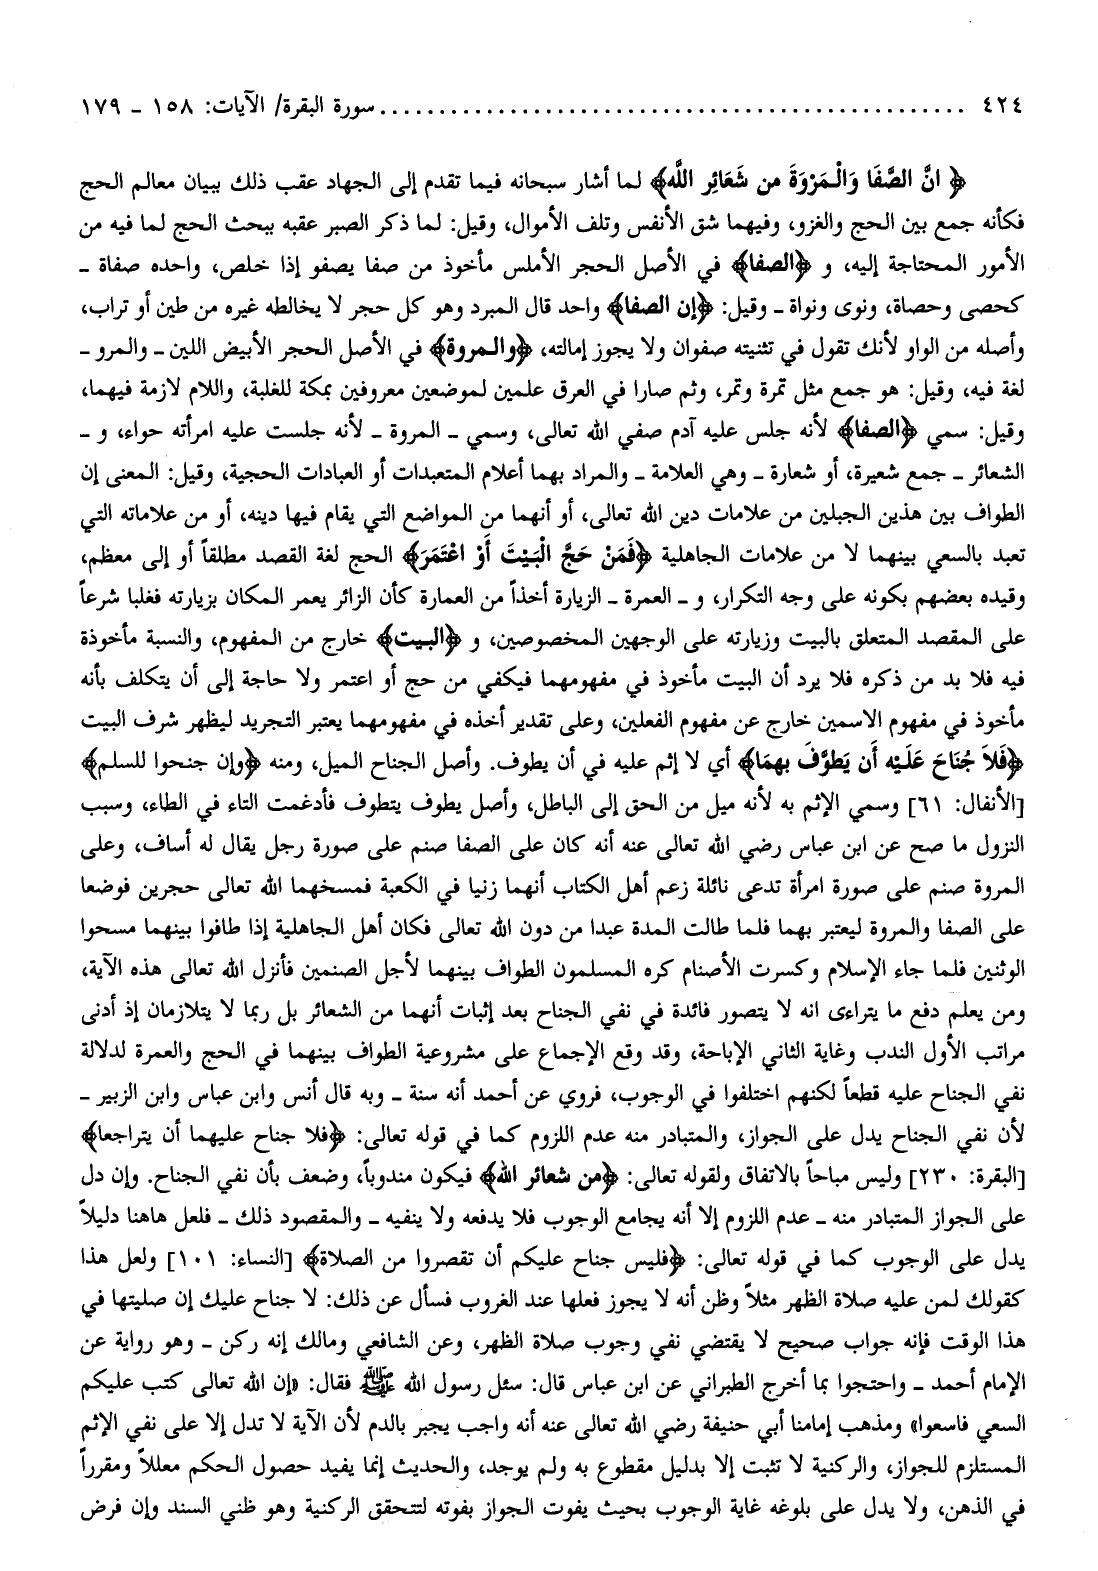 ٤٢٤ ................................................ سورة البقرة/ الآيات: ١٥٨ ـ ١٧٩
﴿ انَّ الصَّفَا وَالْمَرْوَةَ من شَعَائِر اللَّه﴾ لما أشار سبحانه فيما تقدم إلى الجهاد عقب ذلك ببيان معالم الحج
فكأنه جمع بين الحج والغزو، وفيهما شق الأنفس وتلف الأموال، وقيل: لما ذكر الصبر عقبه ببحث الحج لما فيه من
الأمور المحتاجة إليه، و ﴿الصفا﴾ في الأصل الحجر الأملس مأخوذ من صفا يصفو إذا خلص، واحده صفاة ـ
كحصى وحصاة، ونوى ونواة ـ وقيل: ﴿إن الصفا﴾ واحد قال المبرد وهو كل حجر لا يخالطه غيره من طين أو تراب،
وأصله من الواو لأنك تقول في تثنيته صفوان ولا يجوز إمالته، ﴿والمروة﴾ في الأصل الحجر الأبيض اللين ـ والمرو ـ
لغة فيه، وقيل: هو جمع مثل تمرة وتمر، وثم صارا في العرق علمين لموضعين معروفين بمكة للغلبة، واللام لازمة فيهما،
وقيل: سمي ﴿الصفا﴾ لأنه جلس عليه آدم صفي الله تعالى، وسمي ـ المروة ـ لأنه جلست عليه امرأته حواء، و ـ
الشعائر ـ جمع شعيرة، أو شعارة ـ وهي العلامة ـ والمراد بهما أعلام المتعبدات أو العبادات الحجية، وقيل: المعنى إن
الطواف بين هذين الجبلين من علامات دين الله تعالى، أو أنهما من المواضع التي يقام فيها دينه، أو من علاماته التي
تعبد بالسعي بينهما لا من علامات الجاهلية ﴿فَمَنْ حَجَّ الْبَيْتَ أَوْ اعْتَمَرَ﴾ الحج لغة القصد مطلقاً أو إلى معظم،
وقيده بعضهم بكونه على وجه التكرار، و ـ العمرة ـ الزيارة أخذاً من العمارة كأن الزائر يعمر المكان بزيارته فغلبا شرعاً
على المقصد المتعلق بالبيت وزيارته على الوجهين المخصوصين، و ﴿البيت﴾ خارج من المفهوم، والنسبة مأخوذة
فيه فلا بد من ذكره فلا يرد أن البيت مأخوذ في مفهومهما فيكفي من حج أو اعتمر ولا حاجة إلى أن يتكلف بأنه
مأخوذ في مفهوم الاسمين خارج عن مفهوم الفعلين، وعلى تقدير أخذه في مفهومهما يعتبر التجريد ليظهر شرف البيت
﴿فَلاَ جُنَاحَ عَلَيْه أَن يَطوَّفَ بهمَا﴾ أي لا إثم عليه في أن يطوف. وأصل الجناح الميل، ومنه ﴿وإن جنحوا للسلم﴾
[الأنفال: ٦١] وسمي الإثم به لأنه ميل من الحق إلى الباطل، وأصل يطوف يتطوف فأدغمت التاء في الطاء، وسبب
النزول ما صح عن ابن عباس رضي الله تعالى عنه أنه كان على الصفا صنم على صورة رجل يقال له أساف، وعلى
المروة صنم على صورة امرأة تدعى نائلة زعم أهل الكتاب أنهما زنيا في الكعبة فمسخهما الله تعالى حجرين فوضعا
على الصفا والمروة ليعتبر بهما فلما طالت المدة عبدا من دون الله تعالى فكان أهل الجاهلية إذا طافوا بينهما مسحوا
الوثنين فلما جاء الإسلام وكسرت الأصنام كره المسلمون الطواف بينهما لأجل الصنمين فأنزل الله تعالى هذه الآية،
ومن يعلم دفع ما يتراءى انه لا يتصور فائدة في نفي الجناح بعد إثبات أنهما من الشعائر بل ربما لا يتلازمان إذ أدنى
مراتب الأول الندب وغاية الثاني الإباحة، وقد وقع الإجماع على مشروعية الطواف بينهما في الحج والعمرة لدلالة
نفي الجناح عليه قطعاً لكنهم اختلفوا في الوجوب، فروي عن أحمد أنه سنة ـ وبه قال أنس وابن عباس وابن الزبير ـ
لأن نفي الجناح يدل على الجواز، والمتبادر منه عدم اللزوم كما في قوله تعالى: ﴿فلا جناح عليهما أن يتراجعا﴾
[البقرة: ٢٣٠] وليس مباحاً بالاتفاق ولقوله تعالى: ﴿من شعائر الله﴾ فيكون مندوباً، وضعف بأن نفي الجناح. وإن دل
على الجواز المتبادر منه ـ عدم اللزوم إلا أنه يجامع الوجوب فلا يدفعه ولا ينفيه ـ والمقصود ذلك ـ فلعل هاهنا دليلاً
يدل على الوجوب كما في قوله تعالى: ﴿فليس جناح عليكم أن تقصروا من الصلاة﴾ [النساء: ١٠١] ولعل هذا
كقولك لمن عليه صلاة الظهر مثلاً وظن أنه لا يجوز فعلها عند الغروب فسأل عن ذلك: لا جناح عليك إن صليتها في
هذا الوقت فإنه جواب صحيح لا يقتضي نفي وجوب صلاة الظهر، وعن الشافعي ومالك إنه ركن ـ وهو رواية عن
الإمام أحمد ـ واحتجوا بما أخرج الطبراني عن ابن عباس قال: سئل رسول الله ﷺ فقال: «إن الله تعالى كتب عليكم
السعي فاسعوا» ومذهب إمامنا أبي حنيفة رضي الله تعالى عنه أنه واجب يجبر بالدم لأن الآية لا تدل إلا على نفي الإثم
المستلزم للجواز، والركنية لا تثبت إلا بدليل مقطوع به ولم يوجد، والحديث إنما يفيد حصول الحكم معللاً ومقرراً
في الذهن، ولا يدل على بلوغه غاية الوجوب بحيث يفوت الجواز بفوته لتتحقق الركنية وهو ظني السند وإن فرض